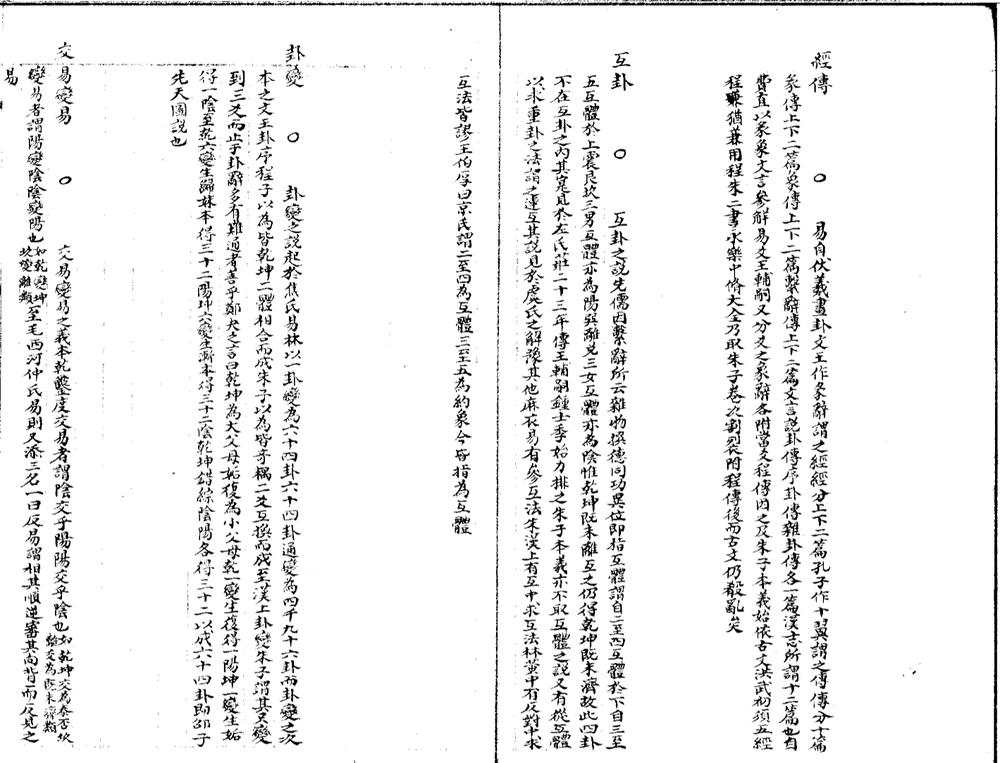 經傳 ○ 易自伏羲畫卦文王作彖辭謂之經經分上下二篇孔子作十翼謂之傳傳分十篇
彖傳上下二篇象傳上下二篇繫辭傳上下二篇文言說卦傳序卦傳雜卦傳各一篇漢志所謂十二篇也自
費直以彖象文言參解易爻王輔嗣又分爻之象辭各附當爻程傳因之及朱子本義始依古文洪武初頒五經
程朱猶兼用程朱二書永樂中脩大全乃取朱子卷次割裂附程傳後而古文仍殽亂矣
互卦 ○ 互卦之說先儒因繫辭所云雜物撰德同功異位即指互體謂自二至四互體於下自三至
五互體於上震艮坎三男互體亦為陽巽離兌三女互體亦為陰惟乾坤既未離互之仍得乾坤既未濟故此四卦
不在互卦之內其寔見於左氏莊二十三年傳王輔嗣鍾士季始力排之朱子本義亦不取互體之說又有從互體
以求重卦之法謂之連互其說見於虞氏之解豫其他麻衣易有參互法朱漢上有互中求互法林黃中有反對中求
互法皆謬王伯厚曰京氏謂二至四為互體三至五為約象今皆指為互體
卦變 ○ 卦變之說起於焦氏易林以一卦變為六十四卦六十四卦通變為四千九十六卦而卦變之次
本之文王卦序程子以為皆乾坤二體相合而成朱子以為皆奇耦二爻互換而成至漢上卦變朱子謂其只變
到三爻而止于卦辭多有難通者善乎鄭夬之言曰乾坤為大父母姤復為小父母乾一變生復得一陽坤一變生姤
得一陰至乾六變生歸妹本得三十二陽坤六變生漸本得三十二陰乾坤錯綜陰陽各得三十二以成六十四卦即邵子
先天圖說也
交易變易 ○ 交易變易之義本乾鑿度交易者謂陰交乎陽陽交乎陰也如乾坤交為泰否坎離交為既未濟類
變易者謂陽變陰陰變陽也如乾變坤坎變離類至毛西河仲氏易則又添三名一曰反易謂相其順逆審其向背而反見之
易